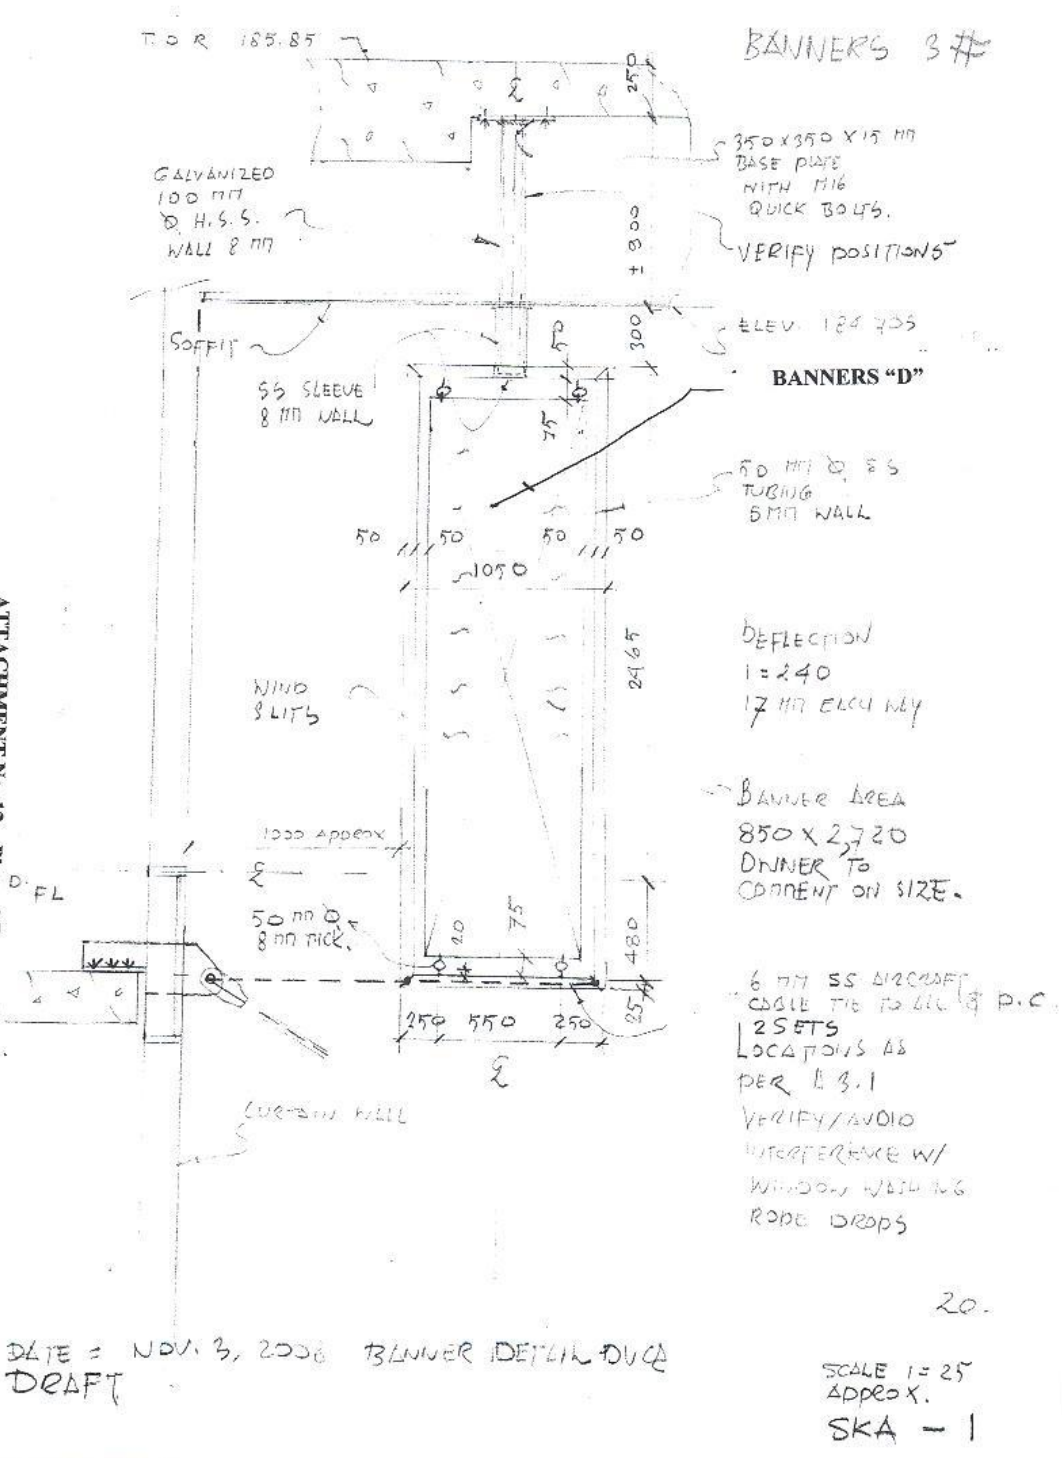 T.O R 185.85
BANNERS 3#
250
℄
350 X 350 X 15 MM
BASE PLATE
WITH M16
QUICK BOLTS.
GALVANIZED
100 MM
Ø H.S.S.
WALL 8 MM
± 900
VERIFY POSITIONS
SOFFIT
300
50
ELEV. 184 705
BANNERS “D”
SS SLEEVE
8 MM WALL
75
50 MM Ø SS
TUBING
5 MM WALL
50
50
50
50
1050
2465
DEFLECTION
1=240
17 MM EACH WAY
WIND
SLITS
BANNER AREA
850 X 2,720
OWNER TO
COMMENT ON SIZE.
1000 APPROX
℄
FL
50 MM Ø
8 MM TICK.
20
75
480
25
250 550 250
℄
6 MM SS AIRCRAFT
CABLE TIE TO
2 SETS
LOCATIONS AS
PER A 3.1
VERIFY/AVOID
INTERFERENCE W/
WINDOW WASHING
ROPE DROPS
CURTAIN WALL
20.
DATE = NOV. 3, 2006 BANNER DETAIL DUCA
DRAFT
SCALE 1=25
APPROX.
SKA - 1